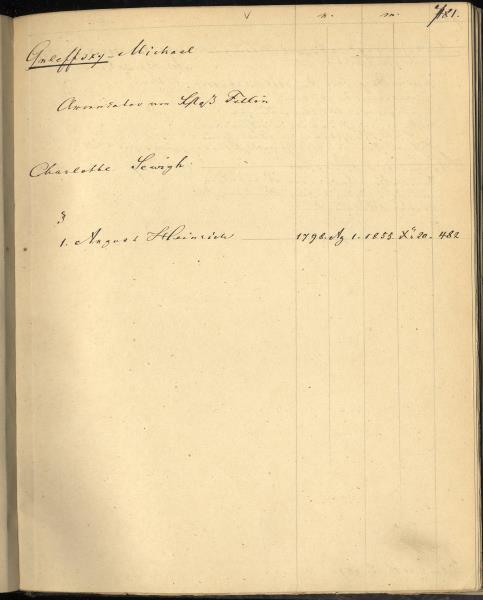 n. m. 481.
Michael
Arrendator von Schloß Fellin
Charlotte Sewigh
1. August Heinrich 1798. Ag 1. 1855. X. 20. 482